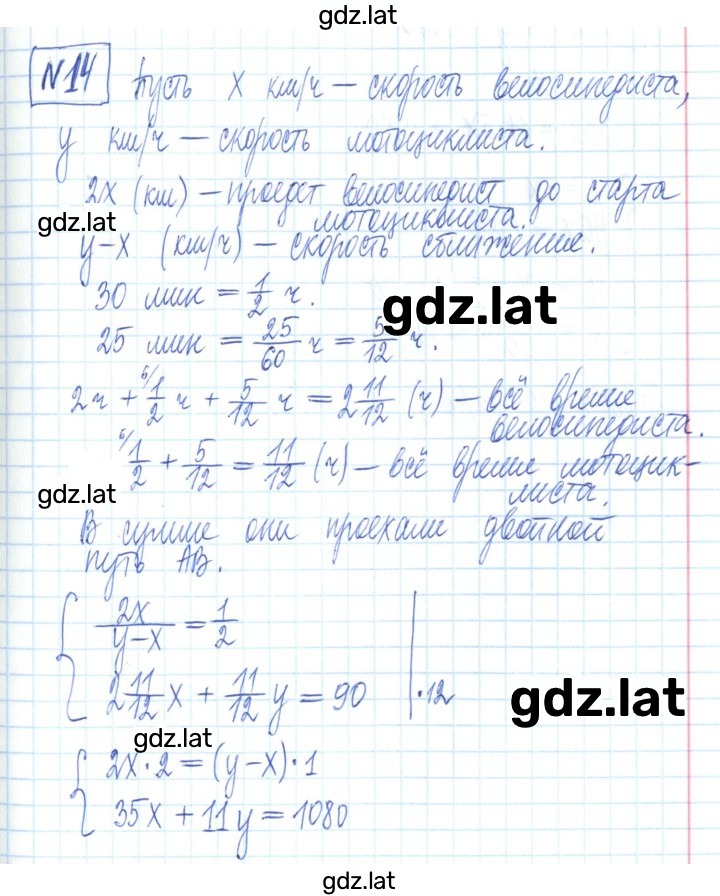 gdz.lat
№14 Пусть x км/ч – скорость велосипедиста,
y км/ч – скорость мотоциклиста.
2x (км) – проедет велосипедист до старта
мотоциклиста.
gdz.lat
y–x (км/ч) – скорость сближение.
30 мин = 1/2 ч.
gdz.lat
25 мин = 25/60 ч = 5/12 ч.
2ч + 6/ 1/2 ч + 5/12 ч = 2 11/12 (ч) – всё время
велосипедиста.
6/ 1/2 + 5/12 = 11/12 (ч) – всё время мотоцик-
листа.
gdz.lat
В сумме они проехали двойной
путь AB.
{ 2x/(y–x) = 1/2
2 11/12 x + 11/12 y = 90 | ·12
gdz.lat
gdz.lat
{ 2x·2 = (y–x)·1
35x + 11y = 1080
gdz.lat